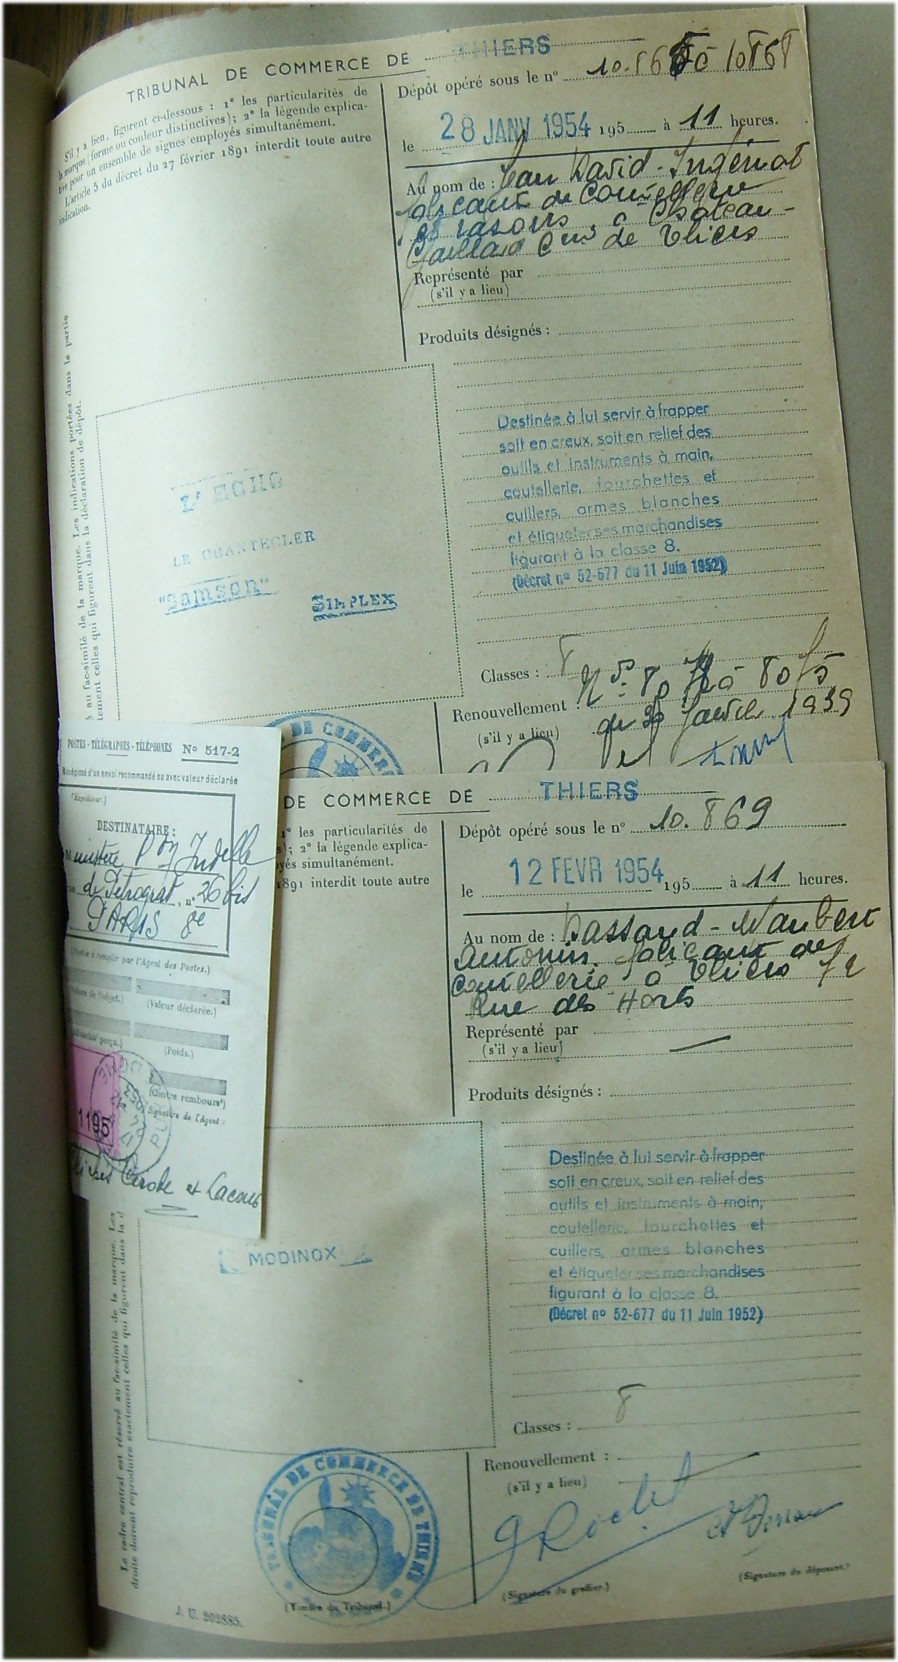 TRIBUNAL DE COMMERCE DE THIERS
S'il y a lieu, figurent ci-dessous : 1° les particularités de
la marque (forme ou couleur distinctives); 2° la légende explica-
tive pour un ensemble de signes employés simultanément.
L'article 5 du décret du 27 février 1891 interdit toute autre
indication.
Dépôt opéré sous le n° à 10868
le 28 JANV 1954 195 à 11 heures.
Au nom de : Jean David-
fabricant de coutellerie
et rasoirs à Château-
Gaillard Cne de Thiers
Représenté par
(s'il y a lieu)
Produits désignés :
au fac-similé de la marque. Les indications portées dans la partie
tement celles qui figurent dans la déclaration de dépôt.
L'ECHO
LE CHANTECLER
"Samson"
SIMPLEX
Destinée à lui servir à frapper
soit en creux, soit en relief des
outils et instruments à main,
coutellerie, fourchettes et
cuillers, armes blanches
et étiqueter ses marchandises
figurant à la classe 8.
(Décret n° 52-677 du 11 Juin 1952)
Classes : 8
Renouvellement
(s'il y a lieu)
Nos 80 à 80
du 30 1939
DE COMMERCE
POSTES - TÉLÉGRAPHES - TÉLÉPHONES N° 517-2
d'un envoi recommandé ou avec valeur déclarée
(Expéditeur.)
DESTINATAIRE :
Ministère
de Petrograd, n° 26 bis
PARIS 8e
(Partie à remplir par l'Agent des Postes.)
(Nature de l'objet.) (Valeur déclarée.)
(Poids.)
(Contre rembours')
Signature de l'Agent :
1195
DE COMMERCE DE THIERS
1° les particularités de
); 2° la légende explica-
yés simultanément.
1891 interdit toute autre
Dépôt opéré sous le n° 10.869
le 12 FEVR 1954 195 à 11 heures.
Au nom de : Dassaud-
Antonin fabricant de
coutellerie à Thiers 72
Rue des Horts
Représenté par
(s'il y a lieu)
Produits désignés :
MODINOX
Destinée à lui servir à frapper
soit en creux, soit en relief des
outils et instruments à main,
coutellerie, fourchettes et
cuillers, armes blanches
et étiqueter ses marchandises
figurant à la classe 8.
(Décret n° 52-677 du 11 Juin 1952)
Classes : 8
Renouvellement :
(s'il y a lieu)
Le cadre central est réservé au fac-similé de la marque. Les
droite doivent reproduire exactement celles qui figurent dans la d
TRIBUNAL DE COMMERCE DE THIERS
(Timbre du Tribunal.)
(Signature du greffier.)
(Signature du déposant.)
J. U. 203885.